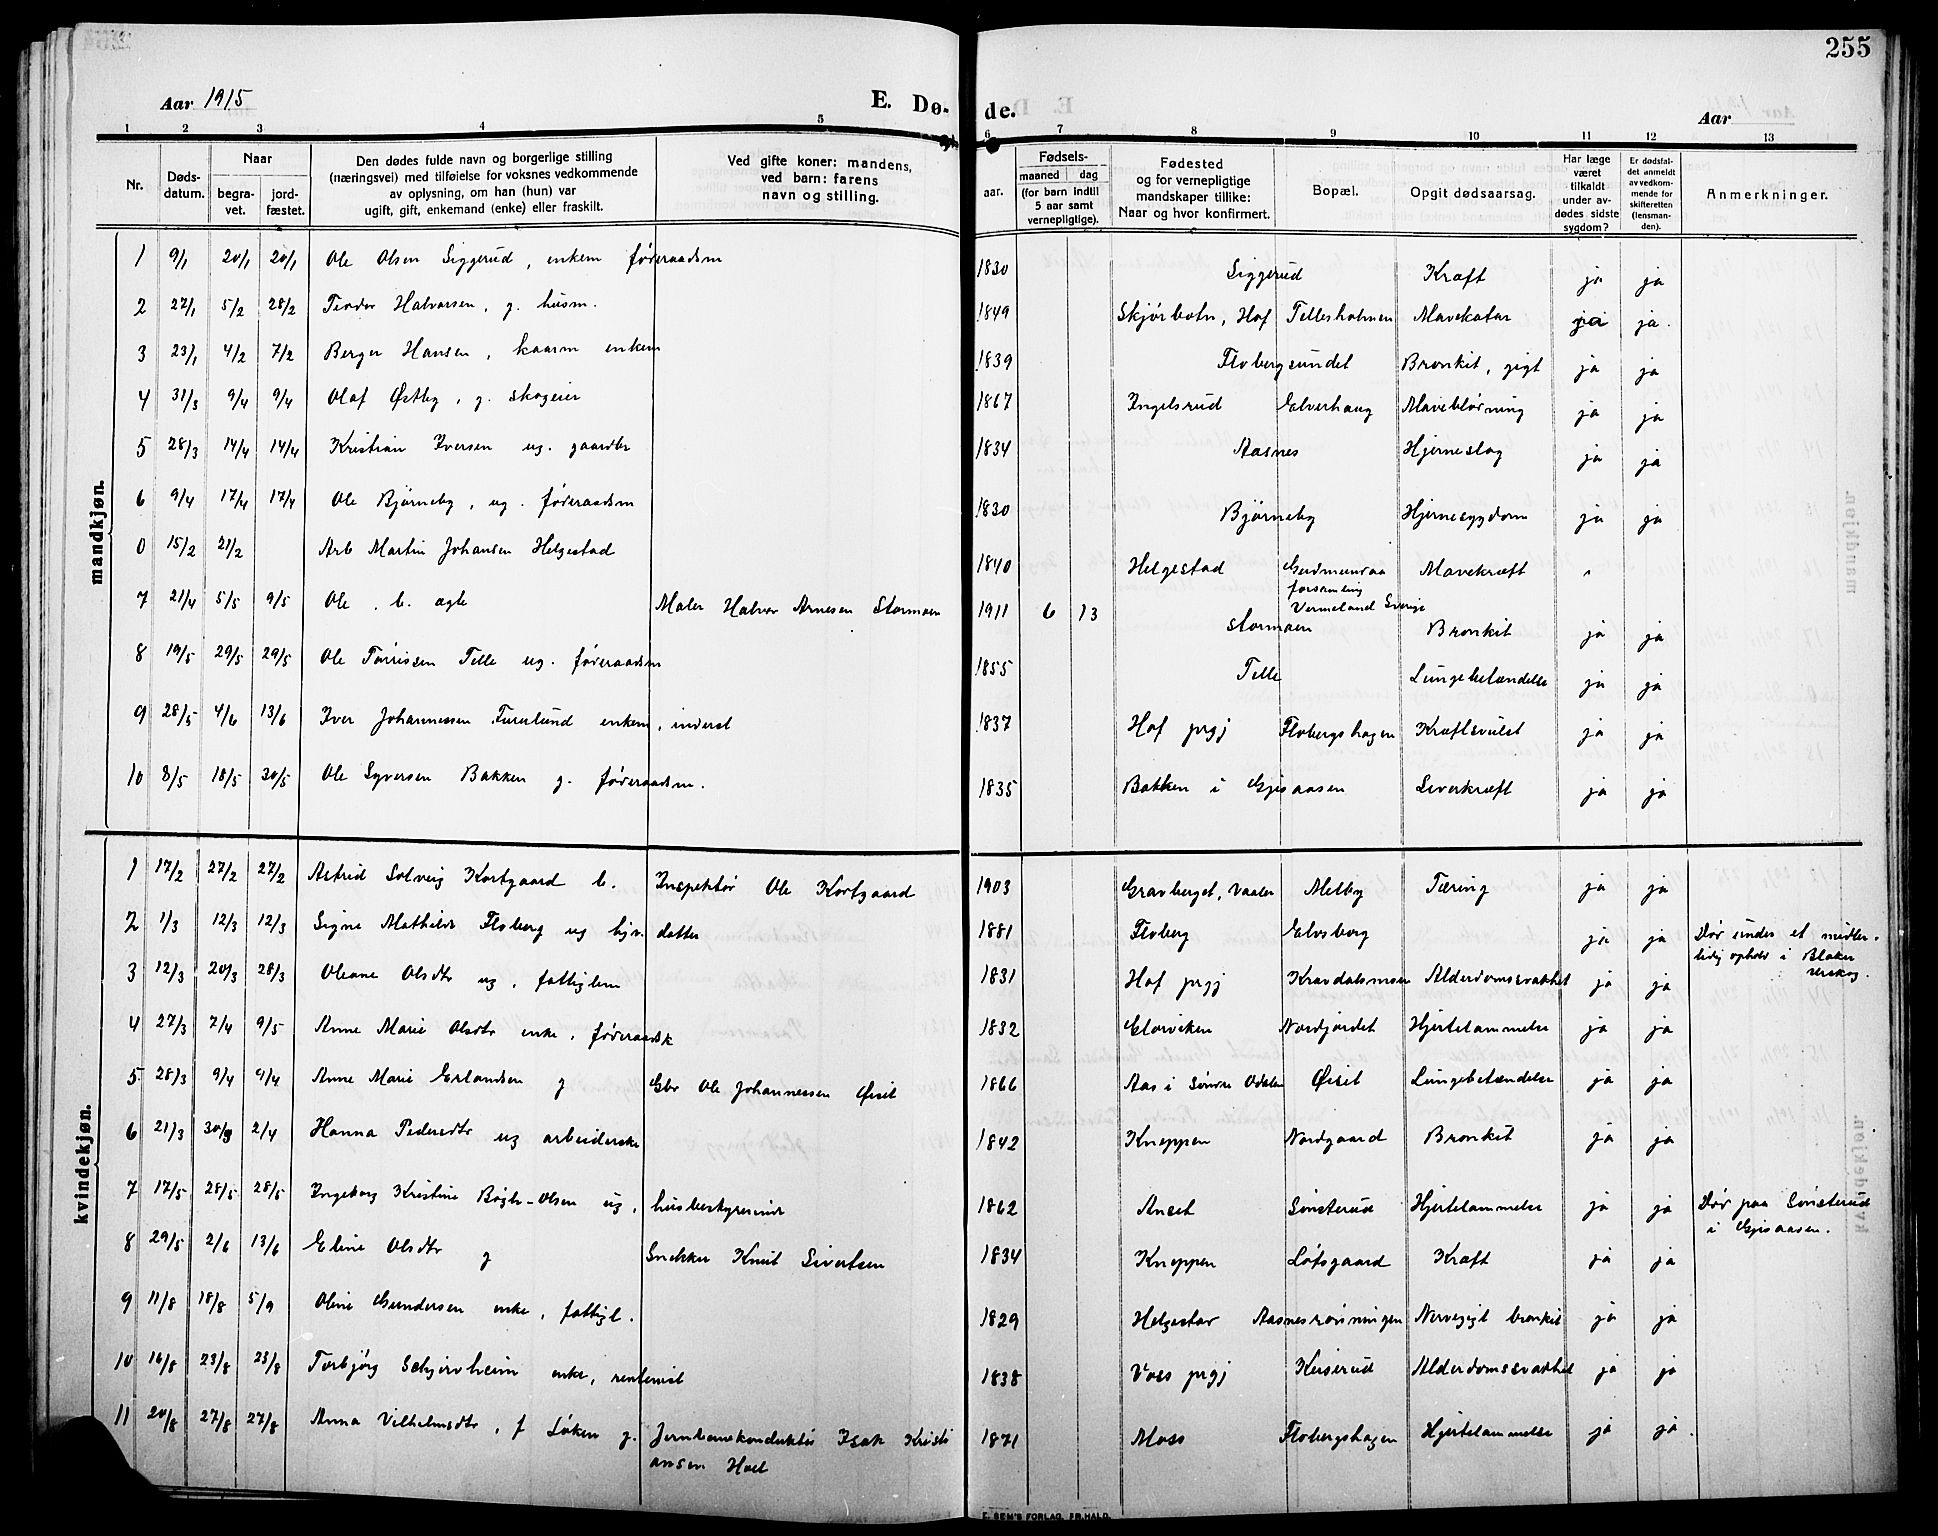 255
Aar 1915
E. Dø-
de.
Aar
1 2 3 4 5 6 7 8 9 10 11 12 13
Nr.
Døds-
datum.
Naar
begra-
vet.
jord-
fæstet.
Den dødes fulde navn og borgerlige stilling
(næringsvei) med tilføielse for voksnes vedkommende
av oplysning, om han (hun) var
ugift, gift, enkemand (enke) eller fraskilt.
Ved gifte koner: mandens,
ved barn: farens
navn og stilling.
aar.
Fødsels-
maaned dag
(for barn indtil
5 aar samt
vernepligtige).
Fødested
og for vernepligtige
mandskaper tillike:
Naar og hvor konfirmert.
Bopæl.
Opgit dødsaarsag.
Har læge
været
tilkaldt
under av-
dødes sidste
sygdom?
Er dødsfal-
det anmeldt
av vedkom-
mende for
skifteretten
(lensman-
den).
Anmerkninger.
mandkjøn.
1 9/1 20/1 20/1 Ole Olsen Siggerud, enkem føderaadsm 1830 Siggerud Kræft ja ja
2 27/1 5/2 28/2 Teodor Halvorsen, g. husm. 1849 Skjørbotn, Hof Tellesholmen Mavekatar ja ja.
3 23/1 4/2 7/2 Berger Hansen, kaarm enkem 1839 Flobergsundet Bronkit, gigt ja ja
4 31/3 9/4 9/4 Olaf Østby, g. skogeier 1867 Ingelsrud Elverhaug Maveblødning ja ja
5 28/3 14/4 14/4 Kristian Iversen ug. gaardbr 1834 Aasnes Hjerneslag ja ja
6 9/4 17/4 17/4 Ole Bjørneby, ug. føderaadsm 1830 Bjørneby Hjernesygdom ja ja
0 15/2 21/2 Arb Martin Johansen Helgestad 1840 Helgestad Gudmundraa Mavekræft
forsamling
Vermeland Sverige
7 21/4 5/5 9/5 Ole, b. egte Maler Halvor Arnesen Stormoen 1911 6 13 Stormoen Bronkit ja ja
8 19/5 29/5 29/5 Ole Tørrissen Telle ug. føderaadsm 1855 Telle Lungebetændelse ja ja
9 28/5 4/6 13/6 Iver Johannessen Furulund enkem, inderst 1837 Hof prgj Flobergshagen Kræftsvulst ja ja
10 8/5 18/5 30/5 Ole Syversen Bakken g. føderaadsm. 1835 Bakken i Gjesaasen Leverkræft ja ja
kvindekjøn.
1 17/2 27/2 27/2 Astrid Solveig Kortgaard b. Inspektør Ole Kortgaard 1903 Gravberget, Vaaler Melby Tæring ja ja
2 1/3 12/3 12/3 Signe Mathilde Floberg ug hjv. datter 1881 Floberg Elvsborg ja ja Dør under et midler-
tidig ophold i Blaker
3 12/3 20/3 28/3 Oleane Olsdtr ug, fattiglem 1831 Hof prgj Kravdalsmoen Alderdomssvakhet ja ja
4 27/3 7/4 9/5 Anne Marie Olsdtr enke, føderaadsk 1832 Glorviken Nordjordet Hjertelammelse ja ja
5 28/3 9/4 9/4 Anne Marie Erlandsen g Gbr Ole Johannessen Øiset 1866 Aas i Søndre Odalen Øiset Lungebetændelse ja ja
6 21/3 30/3 2/4 Hanna Pedersdtr ug arbeiderske 1842 Kneppen Nordgaard Bronkit ja ja
7 17/5 28/5 28/5 Ingeborg Kristine Bøgh-Olsen ug, husbestyrerinde 1862 Anset Sønsterud Hjertelammelse ja ja Dør paa Sønsterud
i Gjesaasen.
8 29/5 2/6 13/6 Eline Olsdtr g Snekker Knut Sivertsen 1834 Kneppen Løtsgaard Kræft ja ja
9 11/8 18/8 5/9 Oline Gundersen enke, fattigl. 1829 Helgestad Aasnesrønningen Nervegigt bronkit ja ja
10 16/8 23/8 23/8 Torbjørg Schjerveheim enke, rentenist 1838 Voss prgj Keiserud Alderdomssvakhet ja ja
11 20/8 27/8 27/8 Anna Vilhelmsdtr, f Løken g. Jernbanekonduktør Isak Kristi 1871 Moss Flobergshagen Hjertelammelse ja ja
ansen Hoel
E. SEM'S FORLAG, FR.HALD.